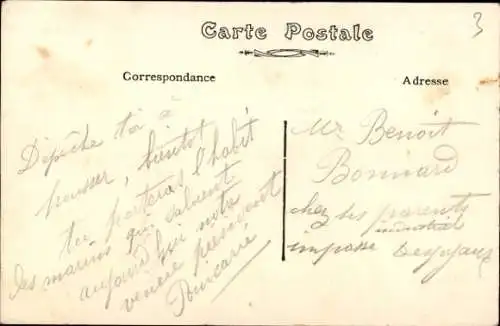 Carte Postale
3
Correspondance
Adresse
Dépêche toi à
pousser, bientôt
tu porteras l'habit
des marins qui saluent
aujourd'hui notre
vénéré président
Poincaré
Mr Benoit
Bonnard
chez ses parents
industriel
impasse